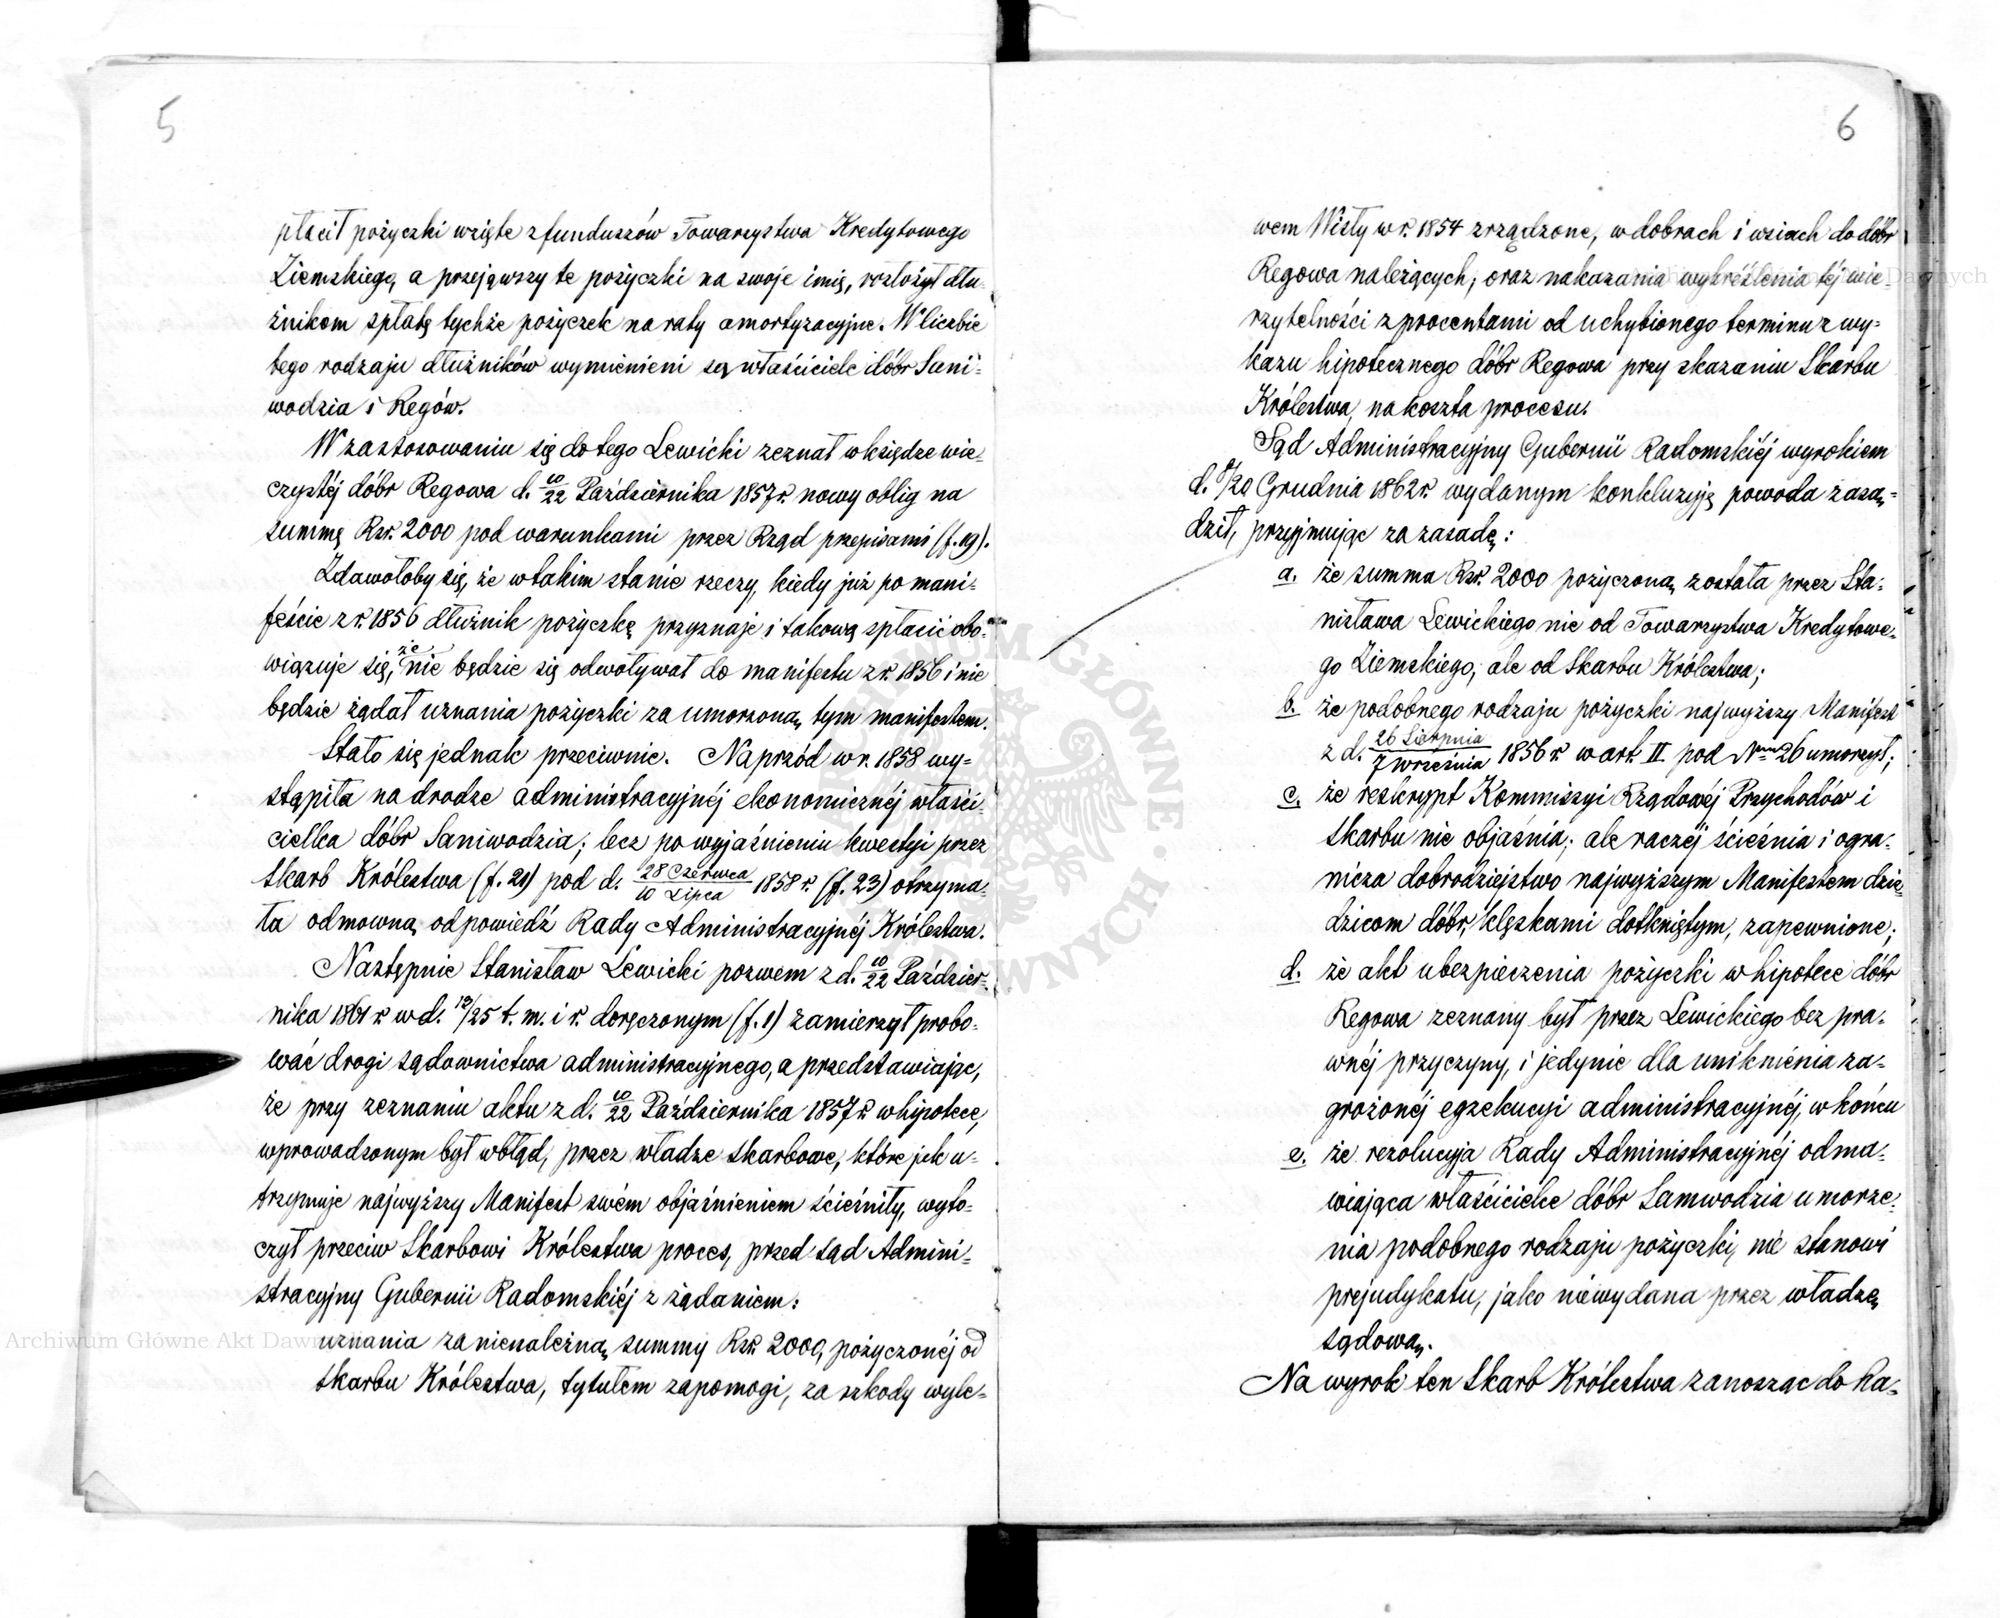 5
płacił pożyczki wzięte z funduszów Towarzystwa Kredytowego
Ziemskiego, a przejąwszy te pożyczki na swoje imię, rozłożył dłu-
żnikom spłatę tychże pożyczek na raty amortyzacyjne. W liczbie
tego rodzaju dłużników wymienieni są właściciele dóbr Sani-
wodzia i Regów.
W zastosowaniu się do tego Lewicki zeznał w księdze wie-
czystéj dóbr Regowa d. 10/22 Października 1857 r. nowy oblig na
summę Rsr. 2000 pod warunkami przez Rząd przepisami (f. 19).
Zdawołoby się, że w takim stanie rzeczy, kiedy już po mani-
feście z r. 1856 dłużnik pożyczkę przyznaje i takową spłacić obo-
wiązuje się, że nie będzie się odwoływał do manifestu z r. 1856 i nie
będzie żądał uznania pożyczki za umorzoną tym manifestem.
Stało się jednak przeciwnie. Naprzód w r. 1858 wy-
stąpiła na drodze administracyjnéj ekonomicznéj właści-
cielka dóbr Saniwodzia; lecz po wyjaśnieniu kwestyi przez
Skarb Królestwa (f. 21) pod d. 28 Czerwca/10 Lipca 1858 r. (f. 23) otrzyma-
ła odmowną odpowiedź Rady Administracyjnéj Królestwa.
Następnie Stanisław Lewicki pozwem z d. 10/22 Paździer-
nika 1861 r. w d. 13/25 t. m. i r. doręczonym (f. 1) zamierzył probo-
wać drogi sądownictwa administracyjnego, a przedstawiając,
że przy zeznaniu aktu z d. 10/22 Października 1857 r. w hipotece,
wprowadzonym był w błąd, przez władze skarbowe, które jak u-
trzymuje najwyższy Manifest swém objaśnieniem ścieśniły, wyto-
czył przeciw Skarbowi Królestwa proces, przed Sąd Admini-
stracyjny Gubernii Radomskiéj z żądaniem:
uznania za nienależną summy Rsr. 2000, pożyczonéj od
Skarbu Królestwa, tytułem zapomogi, za szkody wyle-
6
wem Wisły w r. 1854 zrządzone, w dobrach i wsiach do dóbr
Regowa należących; oraz nakazania wykréślenia téj wie-
rzytelności z procentami od uchybionego terminu z wy-
kazu hipotecznego dóbr Regowa przy skazaniu Skarbu
Królestwa, na koszta procesu.
Sąd Administracyjny Gubernii Radomskiéj wyrokiem
d. 8/20 Grudnia 1862 r. wydanym konkluzyję powoda zasą-
dził, przyjmując za zasadę:
a. że summa Rsr. 2000 pożyczoną została przez Sta-
nisława Lewickiego nie od Towarzystwa Kredytowe-
go Ziemskiego, ale od Skarbu Królestwa;
b. że podobnego rodzaju pożyczki najwyższy Manifest
z d. 26 Sierpnia/7 Września 1856 r. w art. II pod Nrem 26 umorzył;
c. że reskrypt Kommissyi Rządowéj Przychodów i
Skarbu nie objaśnia; ale raczéj ścieśnia i ogra-
nicza dobrodziejstwo najwyższym Manifestem dzie-
dzicom dóbr, klęskami dotkniętym, zapewnione;
d. że akt ubezpieczenia pożyczki w hipotece dóbr
Regowa zeznany był przez Lewickiego bez pra-
wnéj przyczyny, i jedynie dla uniknienia za-
grożonéj egzekucyi administracyjnéj, w końcu
e. że rezolucyja Rady Administracyjnéj odma-
wiająca właścicielce dóbr Samwodzia umorze-
nia podobnego rodzaju pożyczki, nie stanowi
prejudykatu, jako niewydana przez władzę
sądową.
Na wyrok ten Skarb Królestwa zanosząc do ka-
Archiwum Główne Akt Dawnych
ARCHIWUM GŁÓWNE AKT DAWNYCH